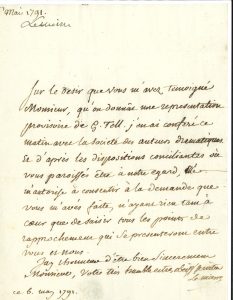 Mai 1791.
Lemière
Sur le desir que vous m'avez temoigné
Monsieur, qu'on donnât une representation
provisoire de G. Tell. j'en ai conféré ce
matin avec la societé des auteurs dramatiques
et d'après les dispositions conciliantes où
vous paroissez être à notre egard,
m'autorise à consentir à la demande que
vous m'avez faite, n'ayant rien tant à
cœur que de saisir tous les points de
rapprochement qui se presenteront entre
vous et nous.
J'ay l'honneur d'être bien sincerement
Monsieur, Votre très humble et obeiss
ce 6. may 1791.